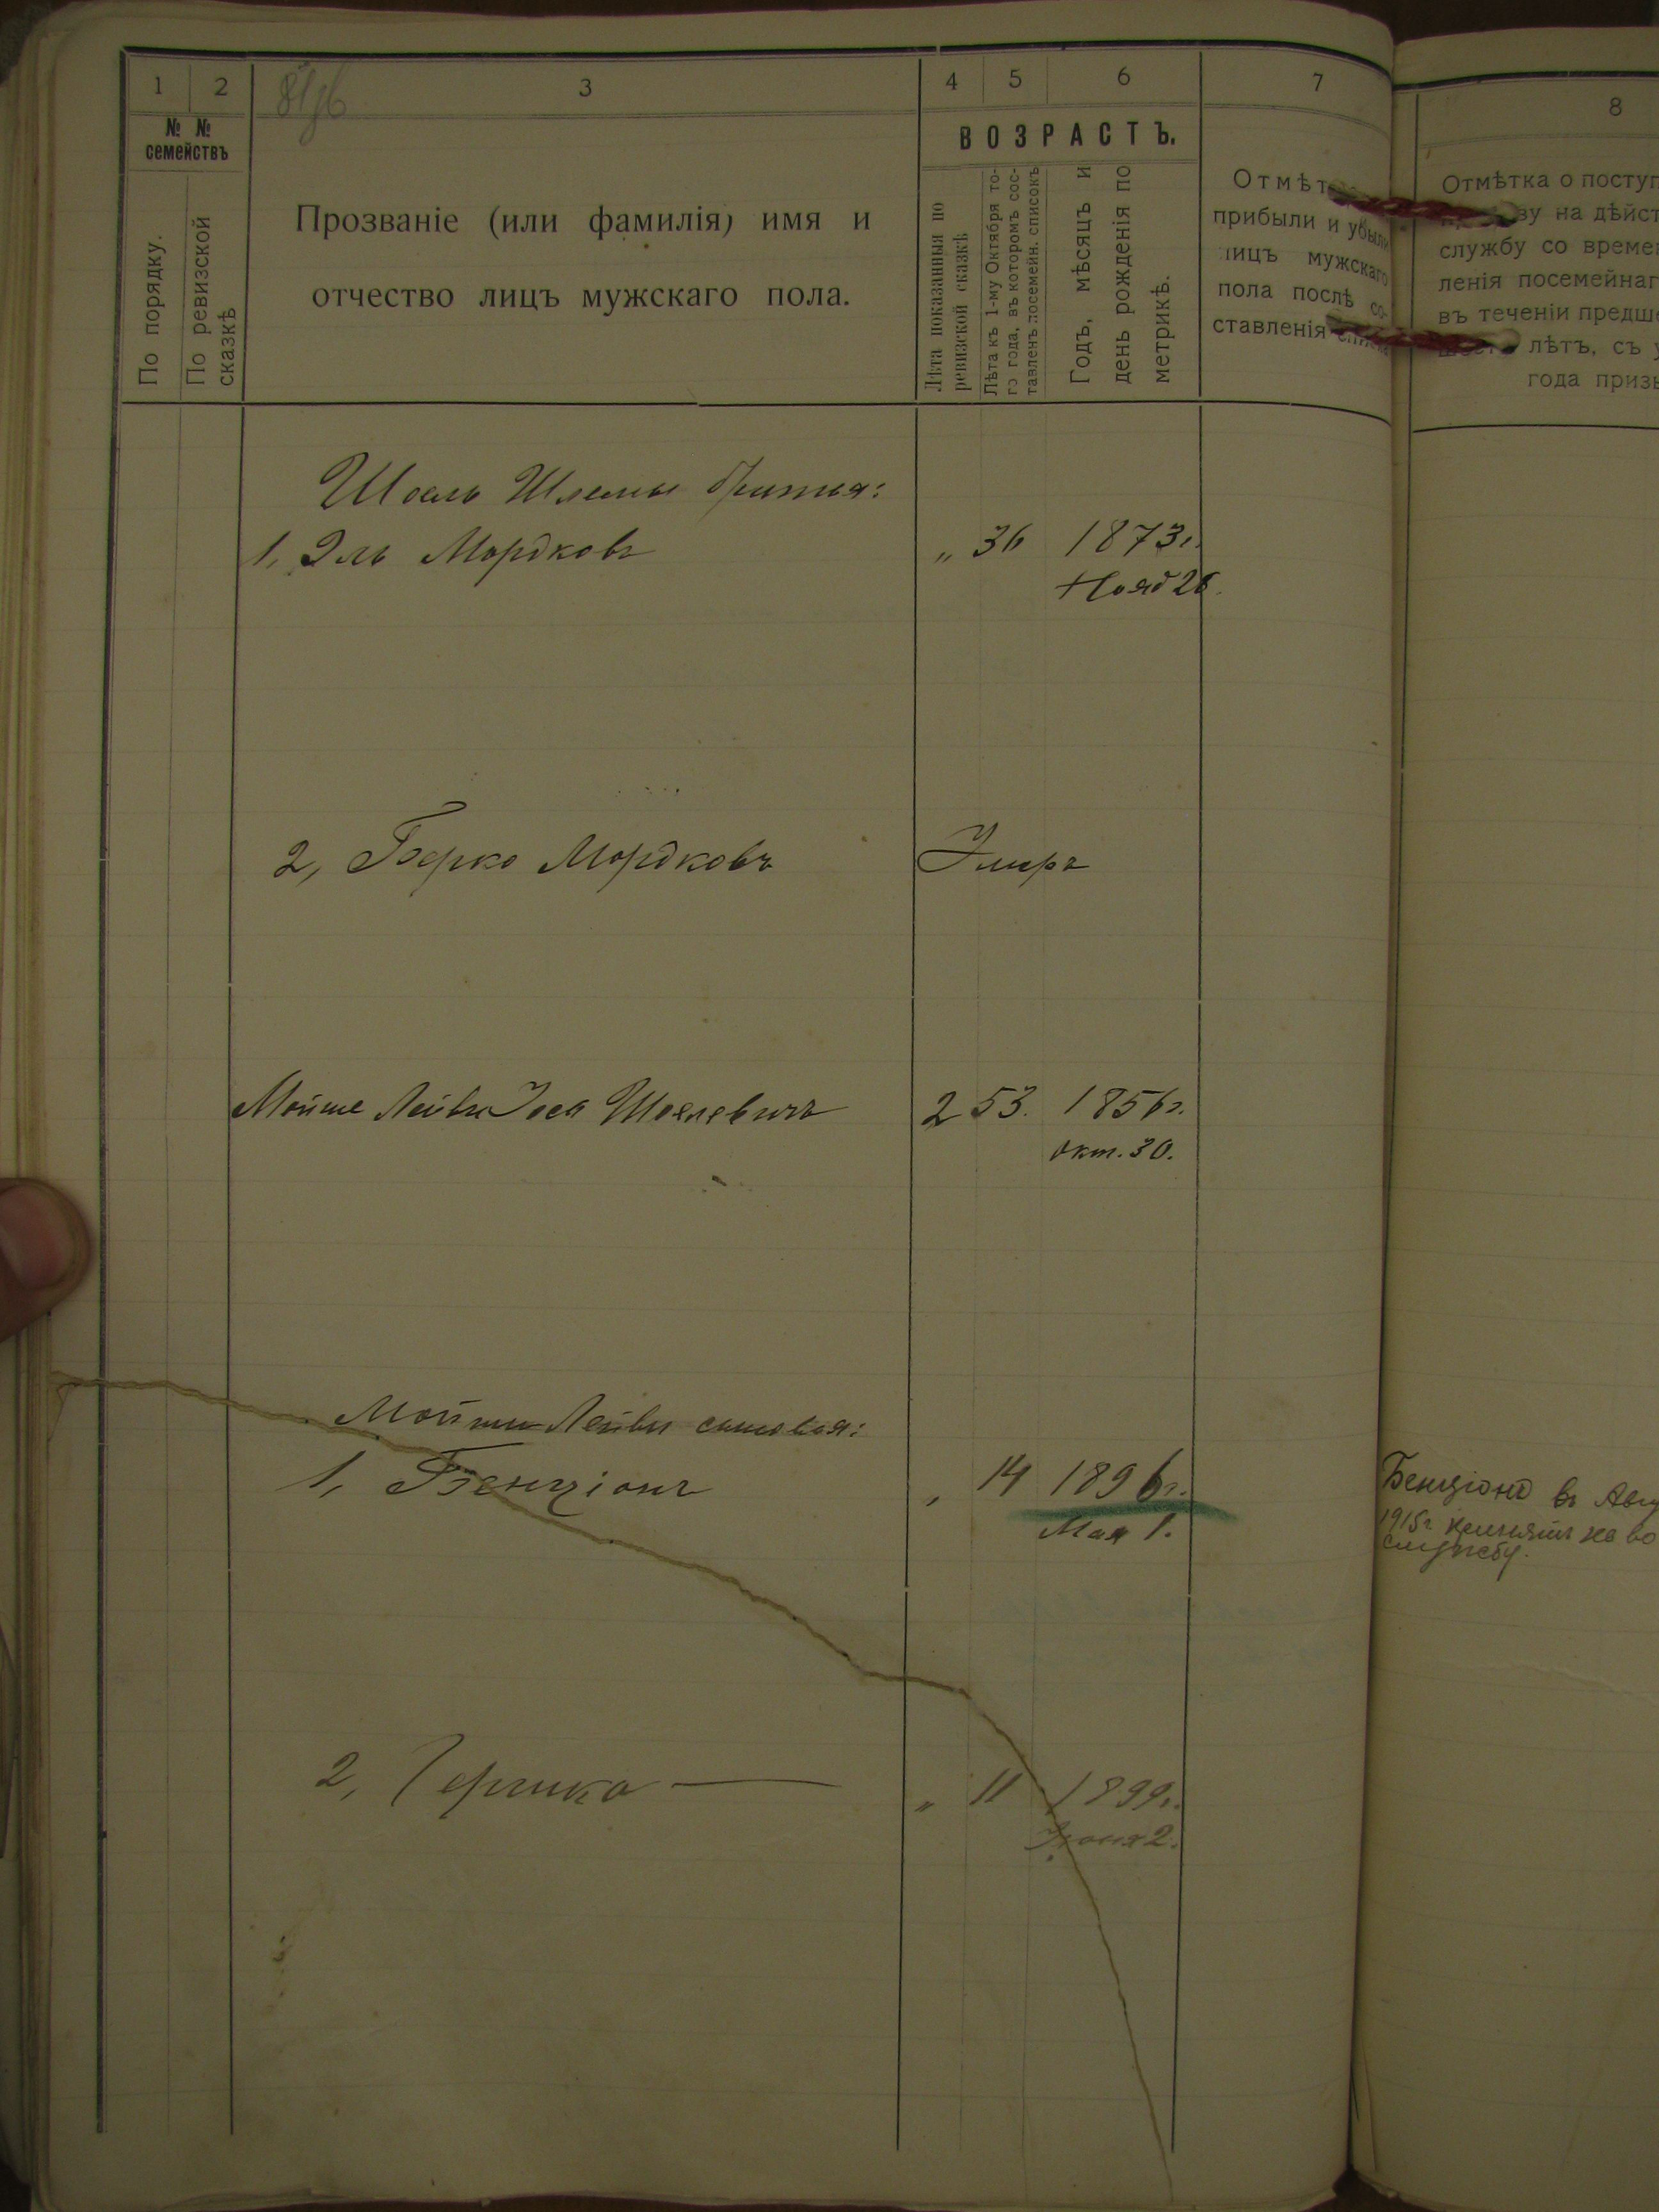 1 2 3 4 5 6 7
№ № семействъ
По порядку.
По ревизской сказкѣ
Прозваніе (или фамилія) имя и
отчество лицъ мужскаго пола.
ВОЗРАСТЪ.
Лѣта показанныя по
ревизской сказкѣ
Лѣта къ 1-му Октября то-
го года, въ которомъ сос-
тавленъ посемейн. списокъ
Годъ, мѣсяцъ и
день рожденія по
метрикѣ.
прибыли и убыли
лицъ мужскаго
пола послѣ со-
ставленія
8
Отмѣтка о поступ
ву на дѣйст
службу со време
ленія посемейнаг
въ теченіи предше
лѣтъ, съ у
года призы
Шоель Шлемы братья:
1, Эль Мордковъ " 36 1873г.
Нояб 26.
2, Берко Мордковъ Умеръ
Мойше Лейвы Іося Шоелевичъ 2 53. 1856г.
окт. 30.
Мойше Лейвы сыновья:
1, Бенціонъ " 14 1896г.
Мая 1.
Бенціонъ въ Авгу
1915г принятъ на во
службу.
2, Гершко — " 11 1899г.
Іюня 2.